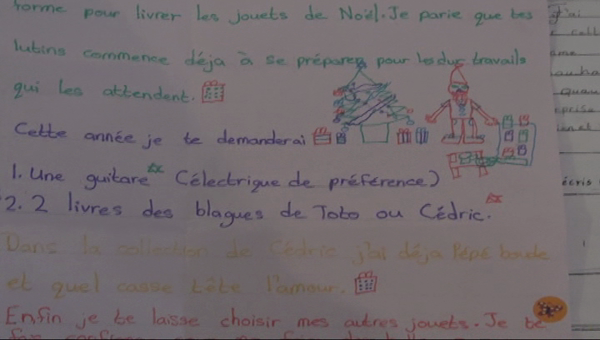 forme pour livrer les jouets de Noël. Je parie que tes
lutins commence déja à se préparer pour les dur travails
qui les attendent.
Cette année je te demanderai
1. Une guitare (électrique de préférence)
2. 2 livres des blagues de Toto ou Cédric.
Dans la collection de Cédric j'ai déja Pépé boude
et quel casse tête l'amour.
Enfin je te laisse choisir mes autres jouets. Je te